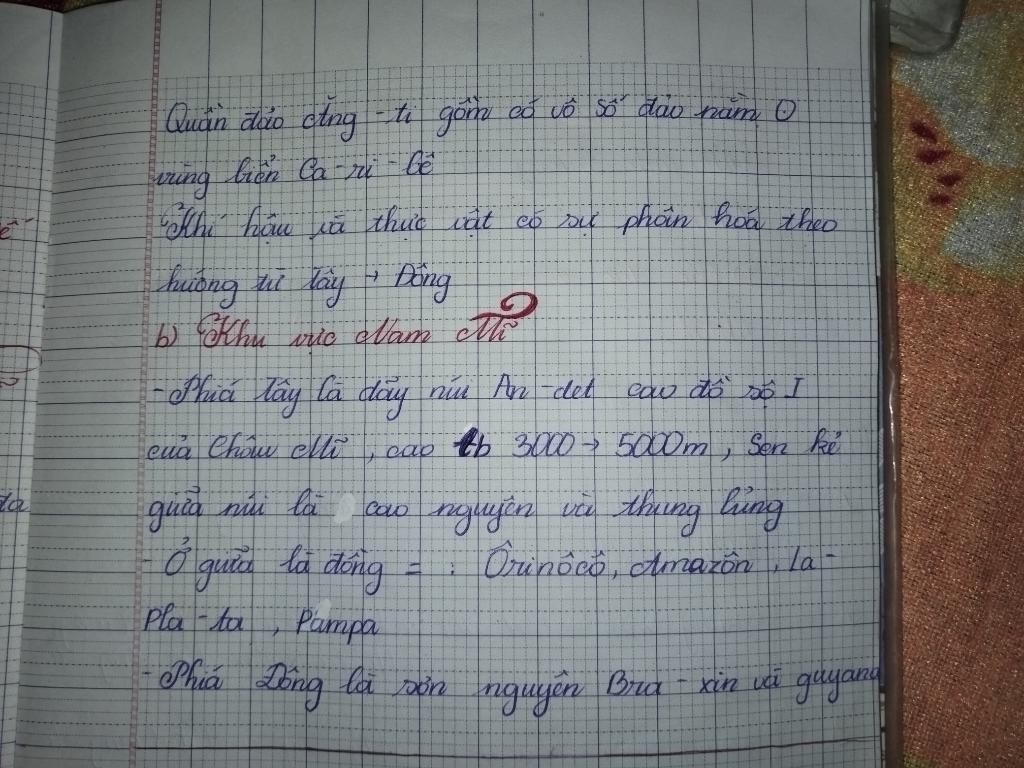 Quần đảo Ăng-ti gồm có vô số đảo nằm ở
vùng biển Ca-ri-bê
Khí hậu và thực vật có sự phân hoá theo
hướng từ Tây → Đông
b) Khu vực Nam Mĩ
- Phiá Tây là dãy núi An-det cao đồ sộ I
của Châu Mĩ, cao tb 3000 → 5000m, Sen kẻ
giữa núi là cao nguyên và thung lủng
- Ở giữa là đồng = : Ôrinôcô, Amazôn, La-
Pla-ta, Pampa
- Phiá Đông là sơn nguyên Bra-xin và guyana
ế
ta